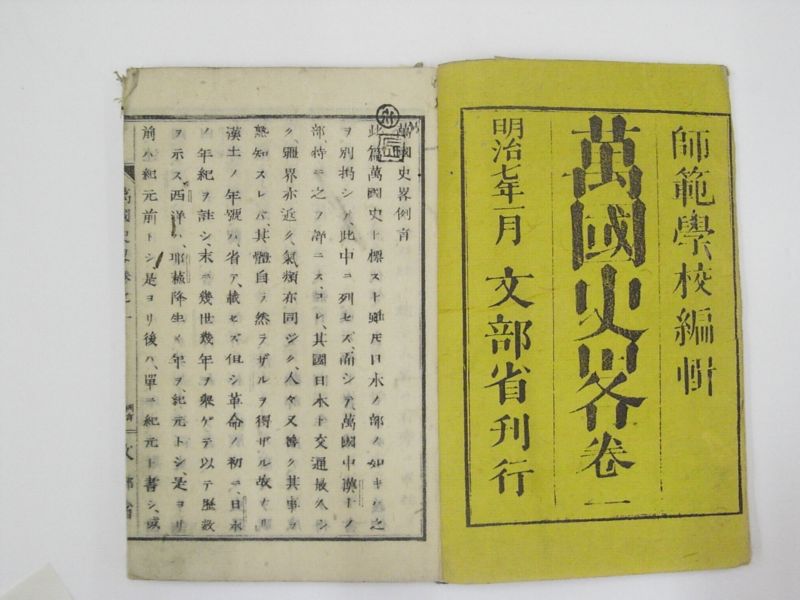 師範學校編輯
萬國史畧卷一
明治七年一月 文部省刊行
萬國史畧例言
此篇萬國史ト標スト雖𪜈日本ノ部ノ如キハ之
ヲ別揭シテ、此中ニ列セズ、而シテ、萬國中漢土ノ
部、特ニ之ヲ詳ニス、コレ其國日本ト交通最久シ
ク、疆界亦近ク、氣類亦同ジク、人々又善ク其事ヲ
熟知スレバ、其體自ラ然ラザルヲ得ザル故ナリ
漢土ノ年號ハ、省テ載セズ、但シ革命ノ初ニ、日本
ノ年紀ヲ註シ、末ニ幾世幾年ヲ擧ゲテ以テ歷數
ヲ示ス、西洋ハ、耶蘇降生ノ年ヲ、紀元トシ、是ヨリ
前ハ紀元前トシ、是ヨリ後ハ、單ニ紀元ト書シ、或
萬國史畧卷之一 例言 一 文部省